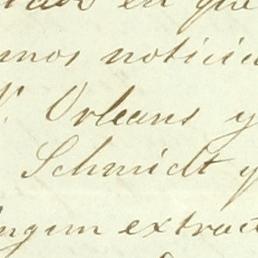 en que
mos noticia
N. Orleans y
Schmidt y
ningun extract